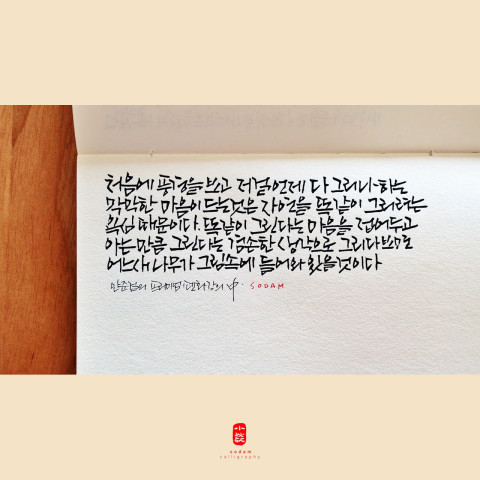 처음에 풍경을 보고 저걸 언제 다 그리나 하는
막막한 마음이 드는것은 자연을 똑같이 그리려는
욕심 때문이다. 똑같이 그린다는 마음을 접어두고
아는 만큼 그린다는 겸손한 생각으로 그리다 보면
어느새 나무가 그림속에 들어와 있을것이다
中. SODAM
sodam
calligraphy